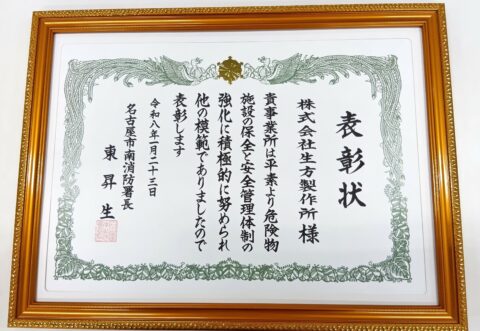 表彰状
株式会社生方製作所様
貴事業所は平素より危険物
施設の保全と安全管理体制の
強化に積極的に努められ
他の模範でありましたので
表彰します
令和八年一月二十三日
名古屋市南消防署長
東昇生